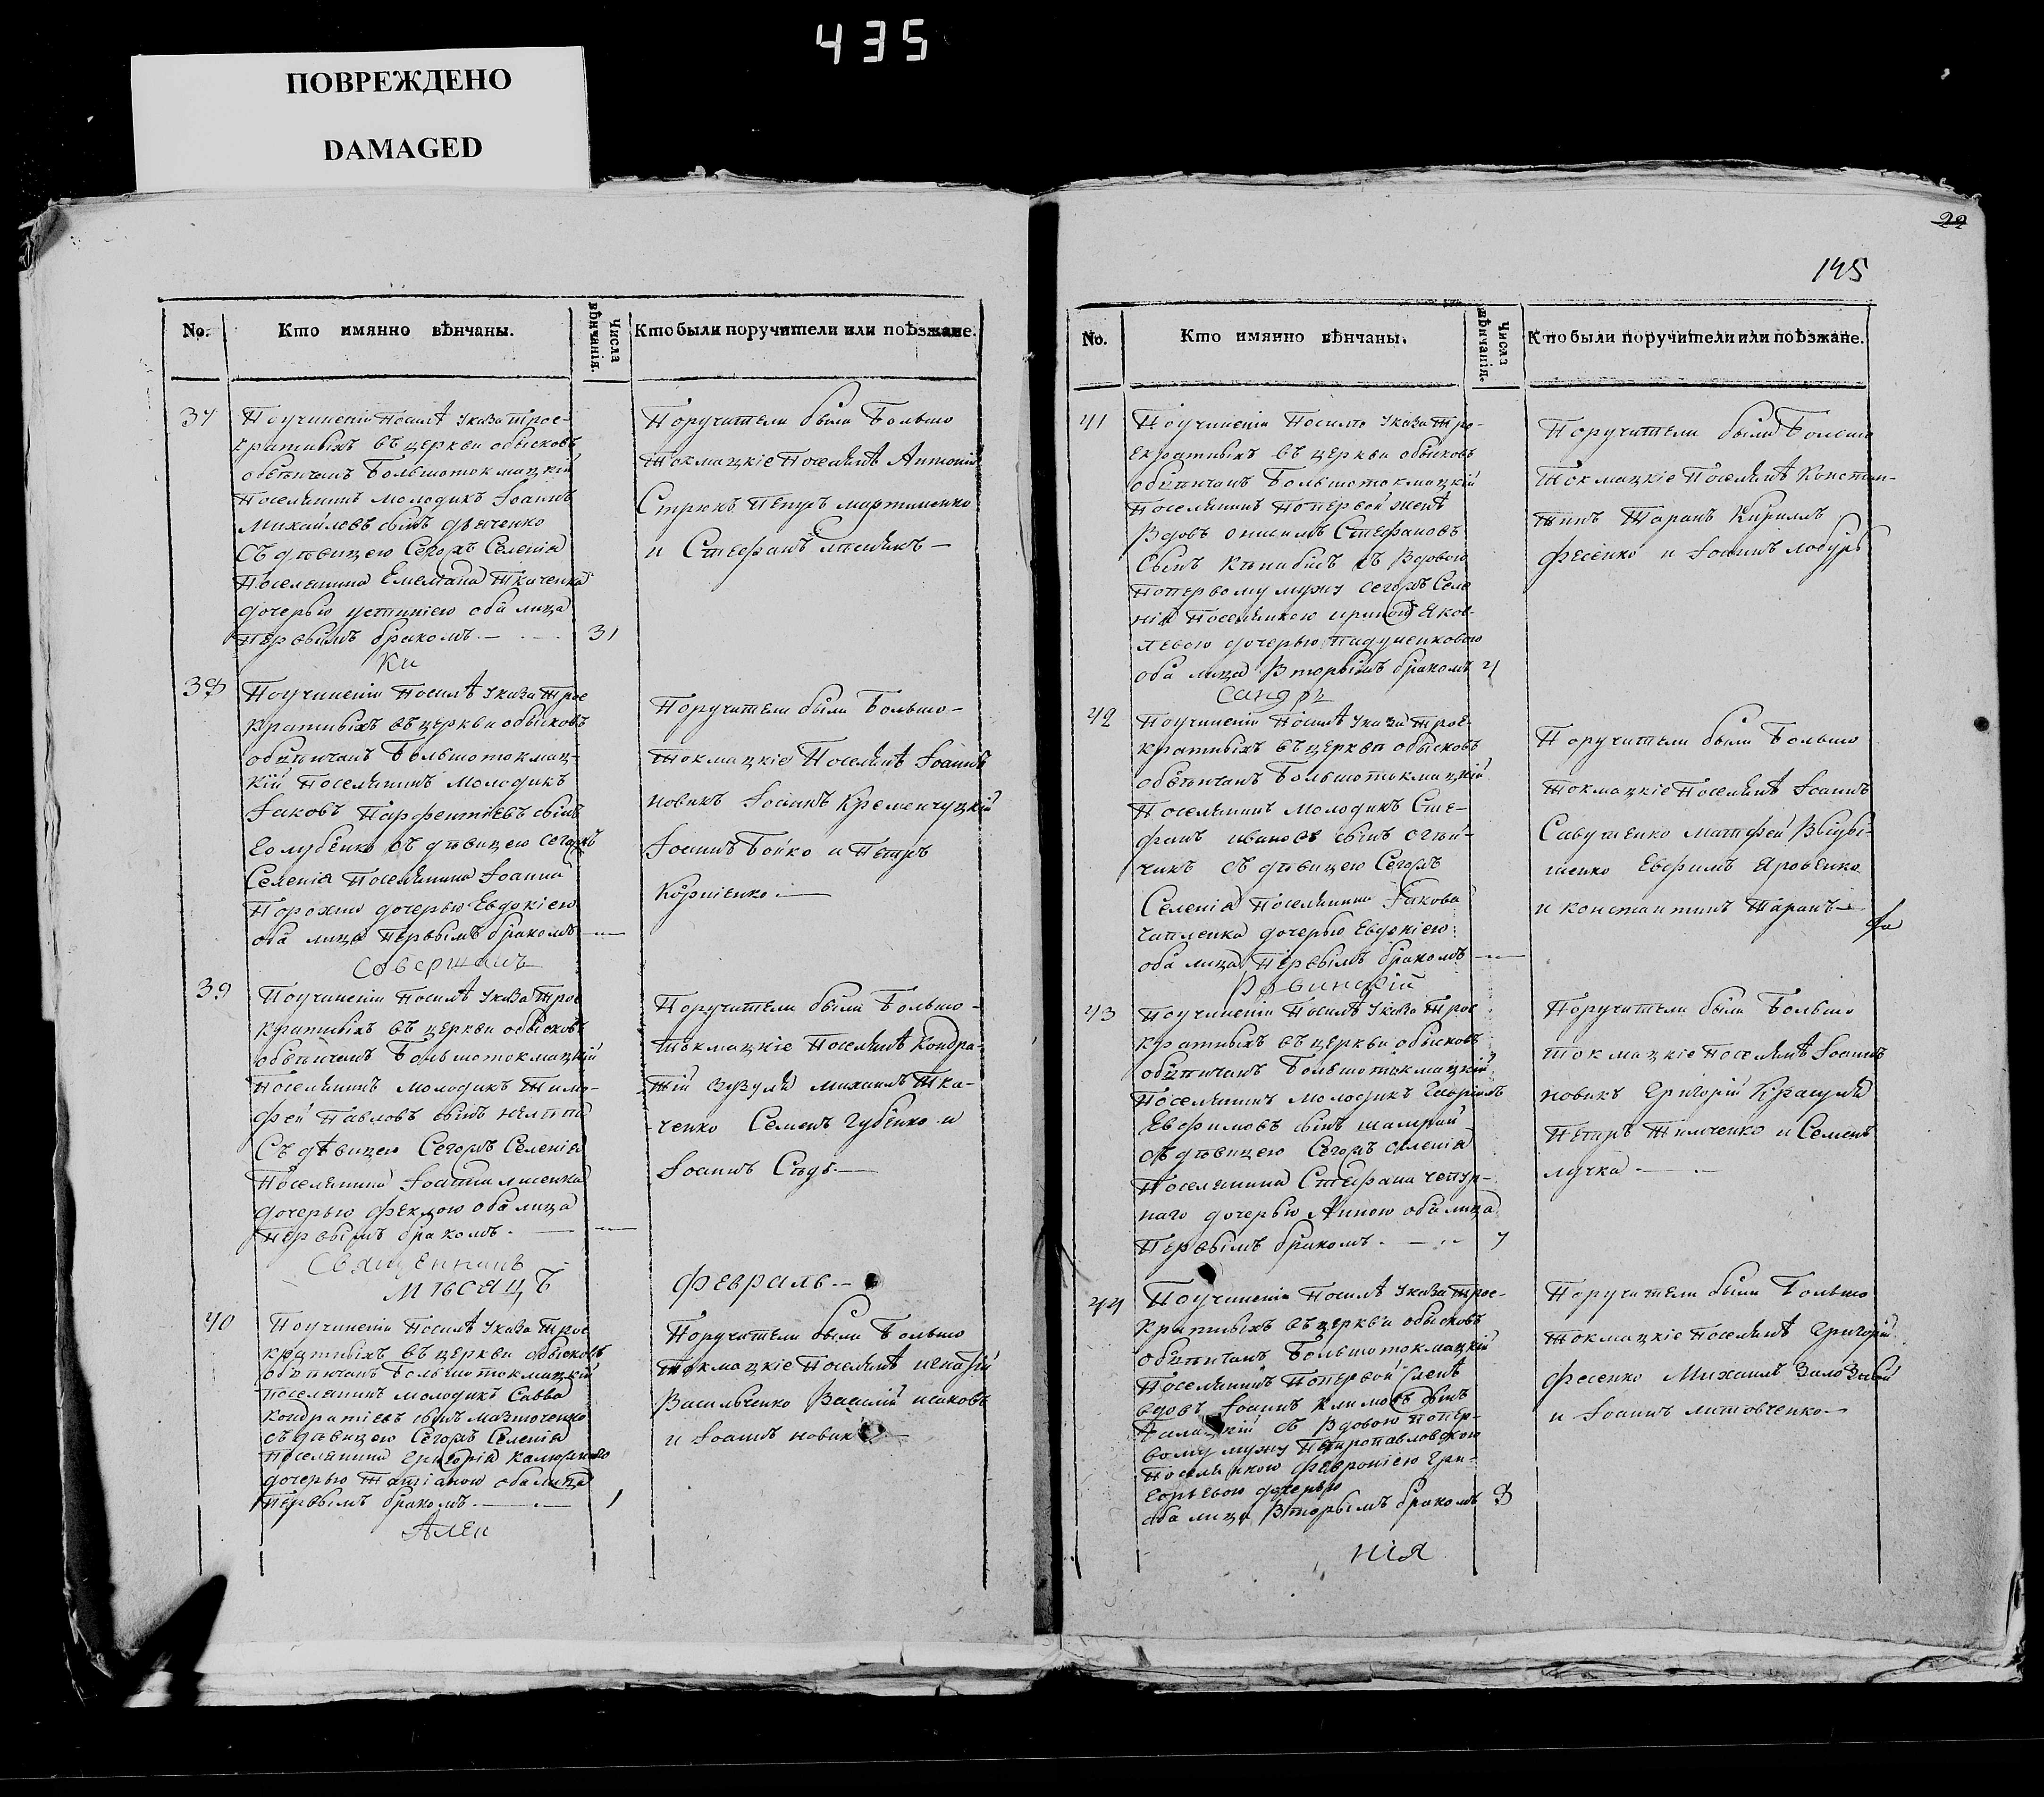 435
ПОВРЕЖДЕНО
DAMAGED
No.
Кто имянно вѣнчаны.
Числа вѣнчанія.
Кто были поручители или поѣзжане.
37
По учиненіи по силѣ указа трое-
кратныхъ въ церкви обысковъ
обвѣнчанъ Большотокмацкій
поселянинъ молодикъ Іоаннъ
Михайловъ сынъ
съ дѣвицею сегожъ селенія
поселянина Емельяна Ткаченка
дочерью Устиніею оба лица
первымъ бракомъ.
31
Поручители были Большо
токмацкіе поселянѣ Антоній
Стрюкъ Петръ Мартыненко
и Стефанъ
Ки
38
По учиненіи по силѣ указа трое
кратныхъ въ церкви обысковъ
обвѣнчанъ Большотокмац-
кій поселянинъ молодикъ
Іаковъ Парфентіевъ сынъ
Голубенко съ дѣвицею сегожъ
селенія поселянина Іоанна
Порохни дочерью Евдокіею
оба лица первымъ бракомъ
Поручители были Большо-
токмацкіе поселянѣ Іоаннъ
Новикъ Іоаннъ Кременчуцкій
Іоаннъ Бойко и Петръ
Корніенко
Совершалъ
39
По учиненіи по силѣ указа трое
кратныхъ въ церкви обысковъ
обвѣнчанъ Большотокмацкій
поселянинъ молодикъ Тимо-
фей Павловъ сынъ
съ дѣвицею сегожъ селенія
поселянина Іоанна Лисенка
дочерью Феклою оба лица
первымъ бракомъ.
Поручители были Большо-
токмацкіе поселянѣ Кондра-
тій Зузуля Михаилъ Тка-
ченко Семенъ Губенко и
Іоаннъ
Священникъ
Мѣсяцъ
Февраль
40
По учиненіи по силѣ указа трое
кратныхъ въ церкви обысковъ
обвѣнчанъ Большотокмацкій
поселянинъ молодикъ Савва
Кондратіевъ сынъ Мазюченко
съ дѣвицею сегожъ селенія
поселянина Григорія
дочерью Татіаною оба лица
первымъ бракомъ.
1
Поручители были Большо
токмацкіе поселянѣ
Васильченко Василій Исаковъ
и Іоаннъ Новик
Алек
22
145
No.
Кто имянно вѣнчаны.
Числа вѣнчанія.
Кто были поручители или поѣзжане.
41
По учиненіи по силѣ указа тро-
екратныхъ въ церкви обысковъ
обвѣнчанъ Большотокмацкій
поселянинъ по первой женѣ
вдовъ Онисимъ Стефановъ
сынъ съ вдовою
по первому мужу сегожъ селе
нія поселянкою Ириною Яков-
левою дочерью
оба лица вторымъ бракомъ
4
Поручители были Большо
токмацкіе поселянѣ Констан-
тинъ Таранъ Кирилъ
Фесенко и Іоаннъ
сандръ
42
По учиненіи по силѣ указа трое-
кратныхъ въ церкви обысковъ
обвѣнчанъ Большотокмацкій
поселянинъ молодикъ Сте-
фанъ Ивановъ сынъ
съ дѣвицею сегожъ
селенія поселянина Іакова
Чапленка дочерью Евдокіею
оба лица первымъ бракомъ
Поручители были Большо
токмацкіе поселянѣ Іоаннъ
Савушенко Матфей
Евфимъ Яровенко
и Константинъ Таранъ
43
По учиненіи по силѣ указа трое
кратныхъ въ церкви обысковъ
обвѣнчанъ Большотокмацкій
поселянинъ молодикъ
Евфимовъ сынъ
съ дѣвицею сегожъ селенія
поселянина Стефана Чепур-
наго дочерью Анною оба лица
первымъ бракомъ.
7
Поручители были Большо
токмацкіе поселянѣ Іоаннъ
Новикъ Григорій
Петръ Тимченко и Семенъ
Лучка
44
По учиненіи по силѣ указа трое-
кратныхъ въ церкви обысковъ
обвѣнчанъ Большотокмацкій
поселянинъ по первой женѣ
вдовъ Іоаннъ Климовъ сынъ
съ вдовою по пер-
вому мужу Петропавловскою
поселянкою Февроніею Гри-
горьевою дочерью
оба лица вторымъ бракомъ
8
Поручители были Большо
токмацкіе поселянѣ Григорій
Фесенко Михаилъ
и Іоаннъ Литовченко
нія